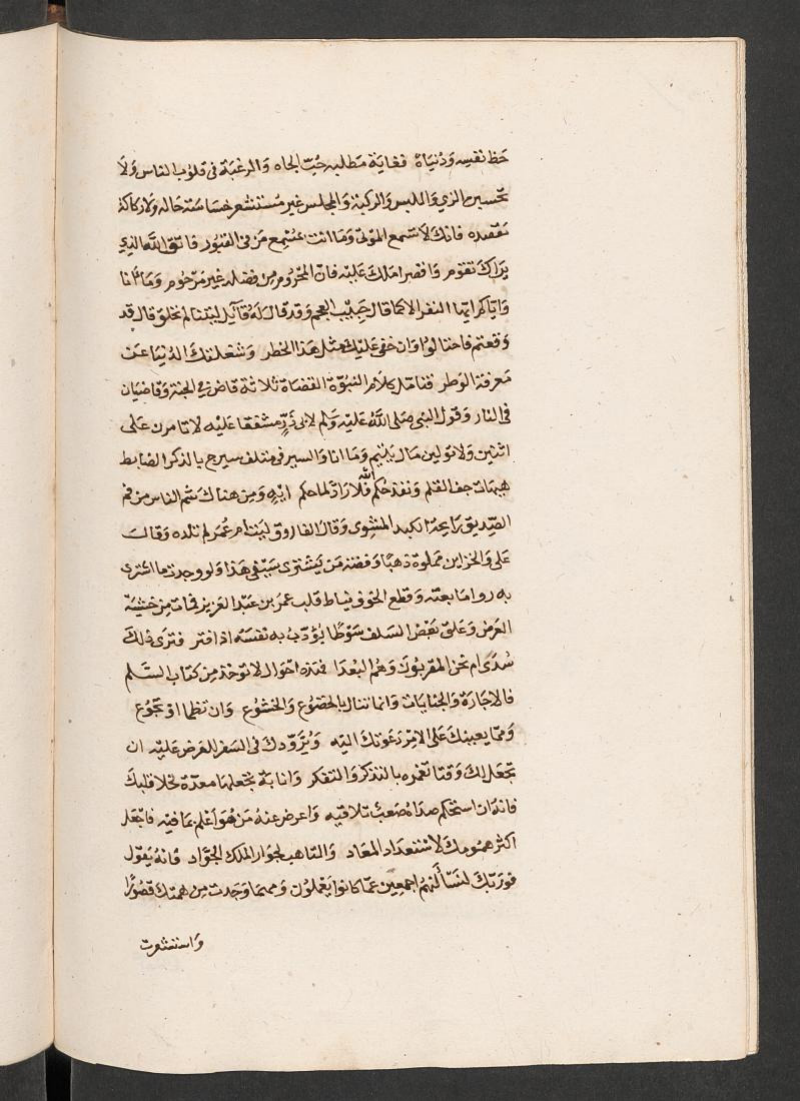 حَظ نفسِه وَدُنيَاهُ فغاية مَطلبه حُبّ الجاه وَالرغبَة فى قلوب الناس وَلَا
تحسين الزي وَاللبس وَالركبة وَالمجلس غير مُستشعر خسَاسَة حَاله وَلا ركاكة
مَقصده فانك لا تسمع الموتى وَمَا انت بمُسْمِع مَن فى القبُور فاتق الله الذي
يرَاك حين تقوم وَاقصر امَلك عَليْه فان المحروم من فضله غير مَرحُوم وَمَا انا
وَاياكم ايها النفر الا كما قال حَبيْب العجم وَقد قال لهُ قائل ليتنا لم نخلق قال قد
وَقعتم فاحتالوا وَان خفى عليك مثل هَذا الخطر وَشغلتك الدُنيا عن
مَعرفة الوطر فتامّل كلام النبُوّة القضاة ثلاثة قاض في الجنة وَقاضيَان
فى النار وَقول النبى صَلى الله عَليْه وَلم لابى ذَرّ مشفقا عَليْه لا تامرن عَلى
اثنين وَلا تولين مَال يَتيْم وَمَا انا وَالسير فى متلف يبرح بالذكر الضابط
هيهات جف القلم وَنفذ حُكم الله فلا رَادّ لما حكم ايْهِ وَمِن هنا ك شم الناس من فم
الصّديق رَايحة الكبد المشوى وَقال الفاروق ليت ام عُمَر لم تلده وَقال
عَلى وَالخزاين مملوة ذهبًا وَفضة مَن يَشترى سَيْفى هَذا وَلو وجدت ما اشترى
به ردا مَا بعته وَقطع الخوف نياط قلب عمَر بن عَبْد العَزيز فمات من خشيَة
العَرض وَعَلق بَعْض السَلف سَوْطًا يُؤدّب به نفسَهُ اذا فتر فترَى ذلك
سُدًى ام نحن المقربُون وَهُم البُعدَا فهَذه احْوَال لا تؤخذ من كتاب السَّلم
وَالاجَارَة وَالجنايَات وَانما تنال بالخضُوع وَالخشوع وَان تظما او تجُوع
وَممّا يعينك عَلى الامر دَعَوتك اليْه وَيُزَوّدك فى السَفر للعَرض عَليْه ان
تجعَل لك وَقتا تعْمره بالتذكر وَالتفكر وَانابة تجعَلهَا معدّة لجلا قلبك
فانه ان استحكم صدَاهُ صَعبَ تلافيه وَاعرض عنهُ مَن هُوَ اعْلم بمَا فيْه فاجعَل
اكثر همُومك لاسْتعدَاد المعَاد وَالتاهب لجوَار الملك الجوّاد فانهُ يَقول
فورَبّك لنسْألنهُم اجمعِيْن عمّا كانوا يَعْملوُن وَمهمَا وَجَدت من همّتك قصُورًا
وَاستشعرت